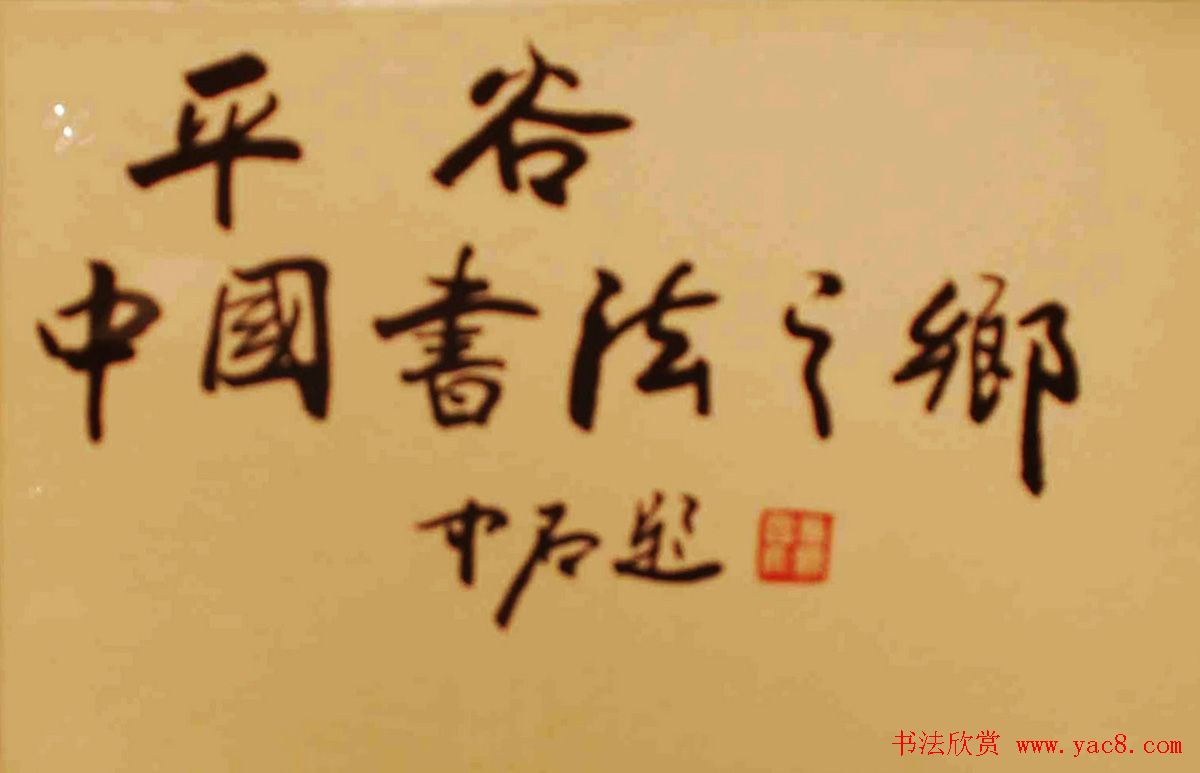 平谷
中國書法之鄉
中石题
书法欣赏 www.yac8.com